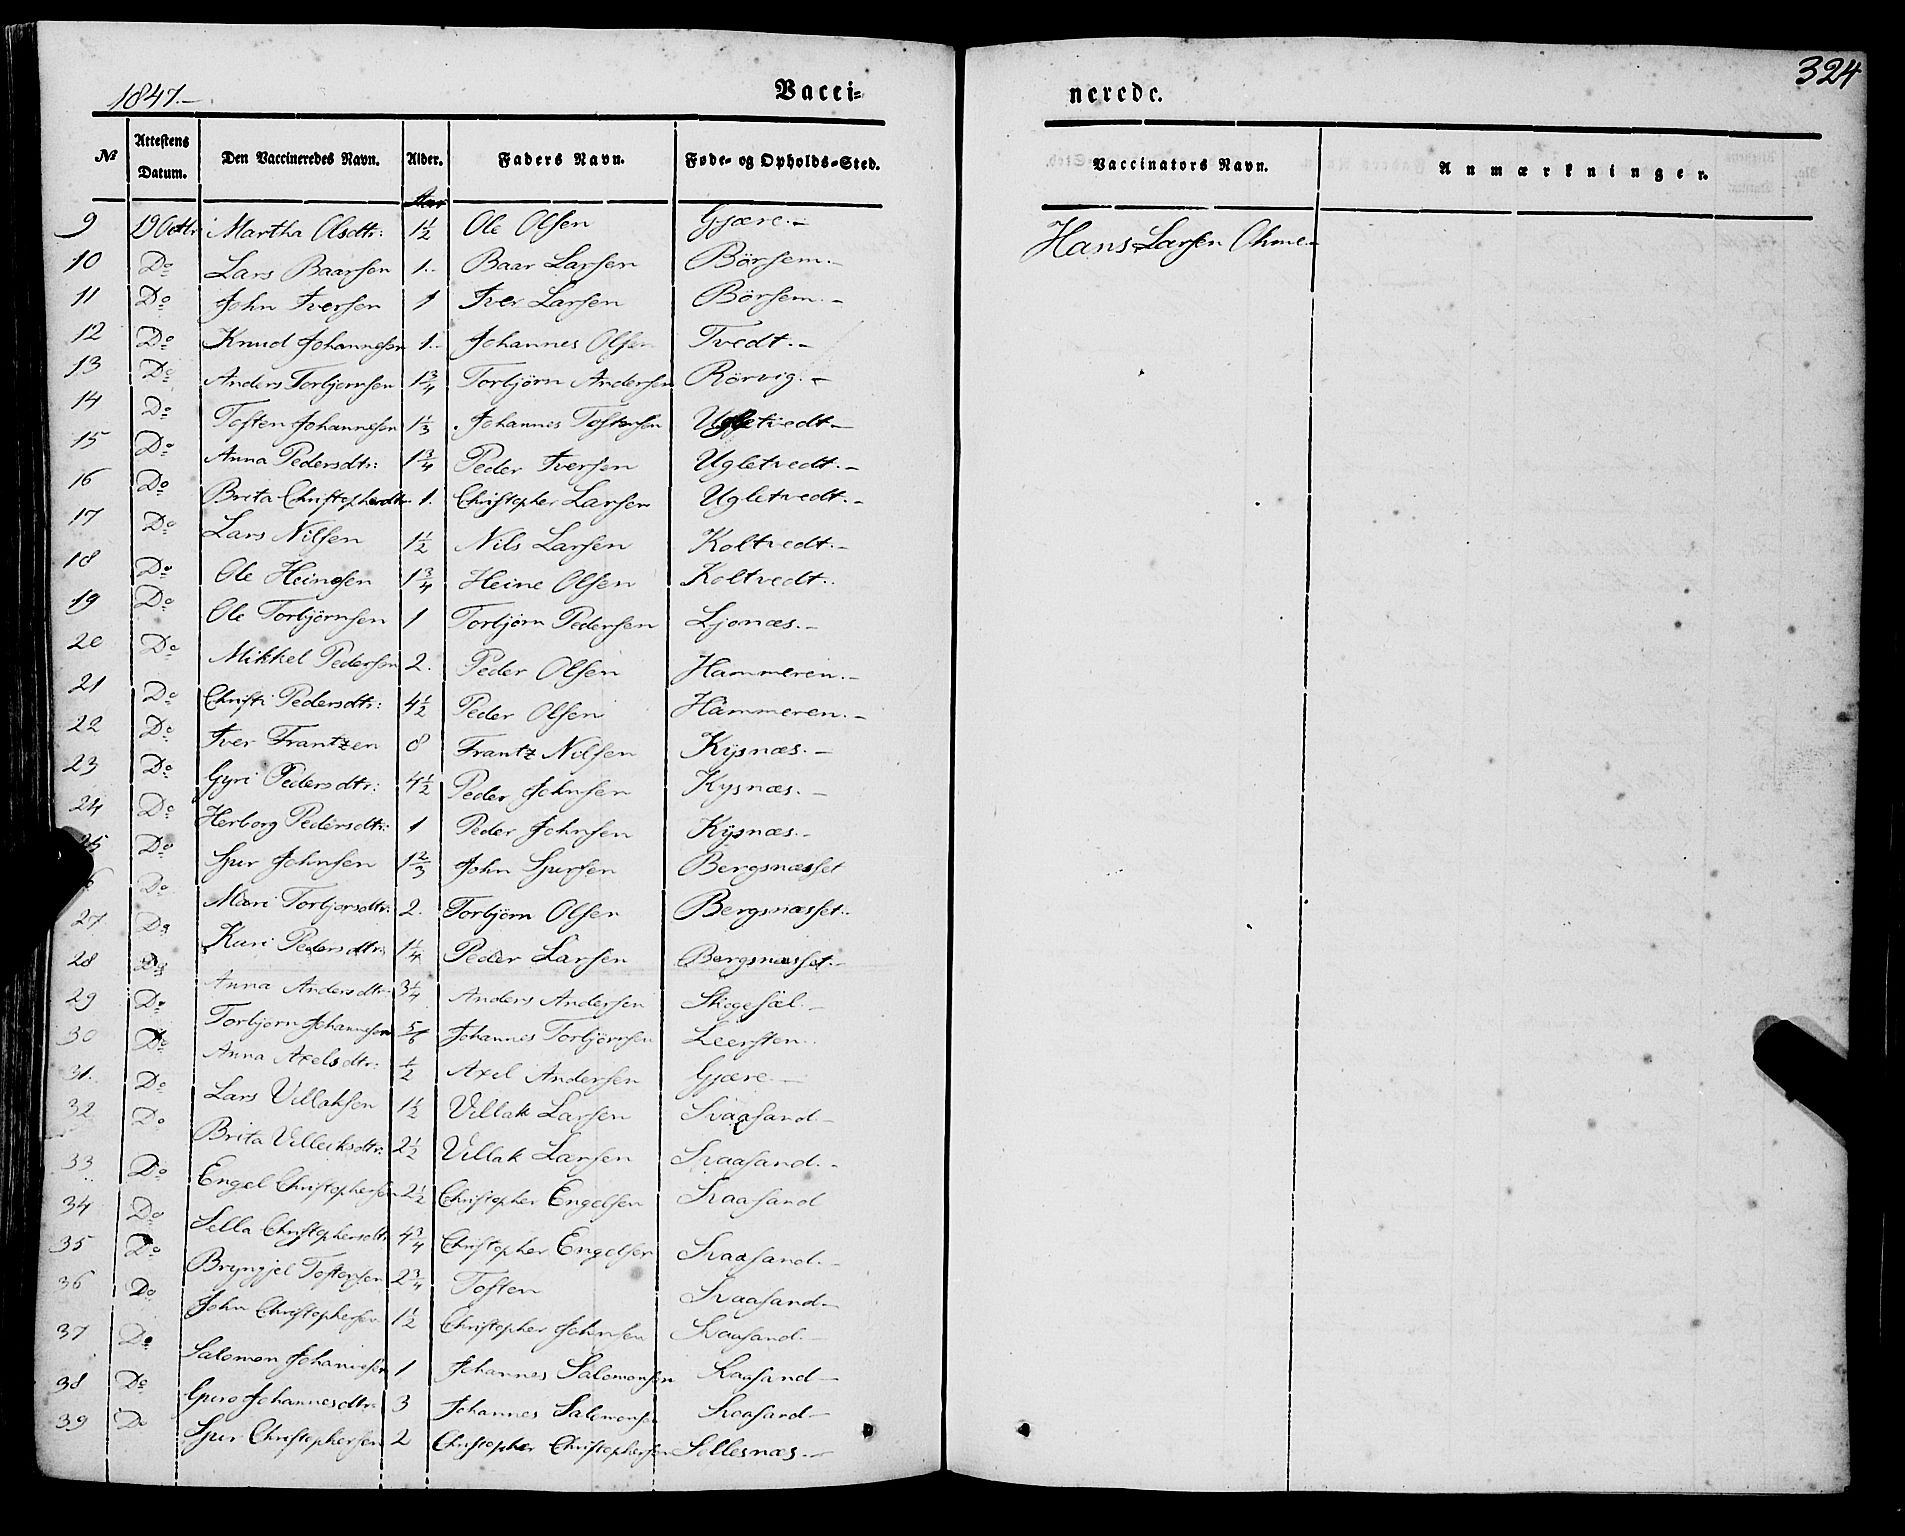 324
1847.- Vacci- nerede.
No Attestens Datum. Den Vaccineredes Navn. Alder. Faders Navn. Føde- og Opholds-Sted. Vaccinators Navn. Anmærkninger.
Aar
9 19 Octbr Martha Olsdtr: 1½ Ole Olsen Gjære.- Hans Larsen Ohme.-
10 Do Lars Baarsen 1.- Baar Larsen Börsem.-
11 Do John Iversen 1 Iver Larsen Börsem.-
12 Do Knud Johannesen 1.- Johannes Olsen Tvedt.-
13 Do Anders Torbjørnsen 1¾ Torbjörn Andersen Rörvig.-
14 Do Tosten Johannesen 1⅓ Johannes Tostensen Ugletvedt-
15 Do Anna Pedersdtr: 1¾ Peder Iversen Ugletvedt.-
16 Do Brita Christophersdtr 1. Christopher Larsen Ugletvedt.-
17 Do Lars Nilsen 1½ Nils Larsen Koltvedt.-
18 Do Ole Heinesen 1¾ Heine Olsen Koltvedt..
19 Do Ole Torbjörnsen 1 Torbjörn Pedersen Ljonæs.-
20 Do Mikkel Pedersen 2. Peder Olsen Hammeren.-
21 Do Christi Pedersdtr: 4½ Peder Olsen Hammeren.-
22 Do Iver Frantzen 8 Frantz Nilsen Kysnæs.-
23 Do Gyri Pedersdtr: 4½ Peder Johnsen Kysnæs.-
24 Do Herborg Pedersdtr: 1 Peder Johnsen Kysnæs.-
25 Do Sjur Johnsen 1⅔ John Sjursen Bergsnæsset
6 Do Mari Torbjørsdtr. 2. Torbjörn Olsen Bergsnæsset.
27 Do Kari Pedersdtr: 1¼ Peder Larsen Bergsnæsset.-
28 Do Anna Andersdtr. 3¼ Anders Andersen
29 Do Torbjörn Johannesen 5/6 Johannes Torbjörnsen
30 Do Anna Axelsdtr: ½ Axel Andersen Gjære.-
31. Do Lars Villaksen 1½ Villak Larsen Svaasand.-
32 Do Brita Villaksdtr: 2½ Villak Larsen Svaasand.-
33 Do Engel Christophersen 2½ Christopher Engelsen Svaasand
34 Do Sella Christophersdtr 4¾ Christopher Engelsen Svaasand.-
35 Do Bryngjel Tostensen 2¾ Tosten Svaasand-
36 Do John Christophersen 1½ Christopher Johnsen Svaasand.-
37 Do Salomon Johannesen 1 Johannes Salomonsen Svaasand-
38 Do Guro Johannesdtr: 3 Johannes Salomonsen Svaasand-
39 Do Sjur Christophersen 2 Christopher Christophersen Sellesnæs.-